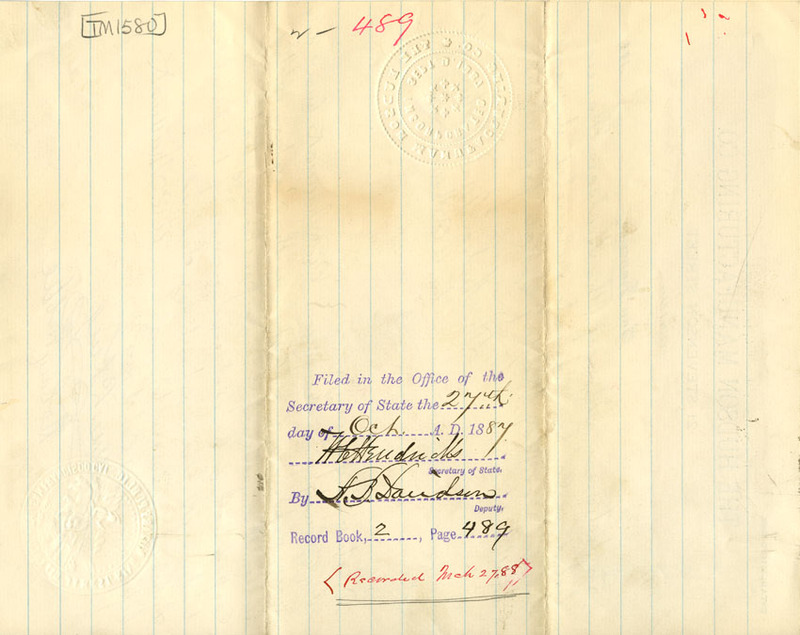 TM1580
2 - 489
Filed in the Office of the
Secretary of State the 27th
day of Oct. A.D. 1887
W C Hendricks
Secretary of State.
By A. B. Davidson
Deputy.
Record Book, 2, Page 489
(Recorded Mch 27, 88)